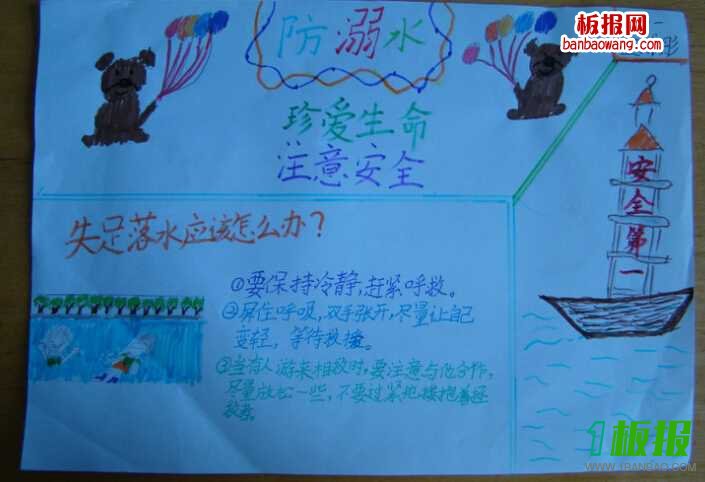 防溺水
板报网
banbaowang.com
形
珍爱生命
注意安全
安全第一
失足落水应该怎么办？
①要保持冷静，赶紧呼救。
②屏住呼吸，双手张开，尽量让自己
变轻，等待救援。
③当有人游来相救时，要注意与他合作，
尽量放松一些，不要过紧地搂抱着拯
救者。
1板报
WWW.1BANBAO.COM